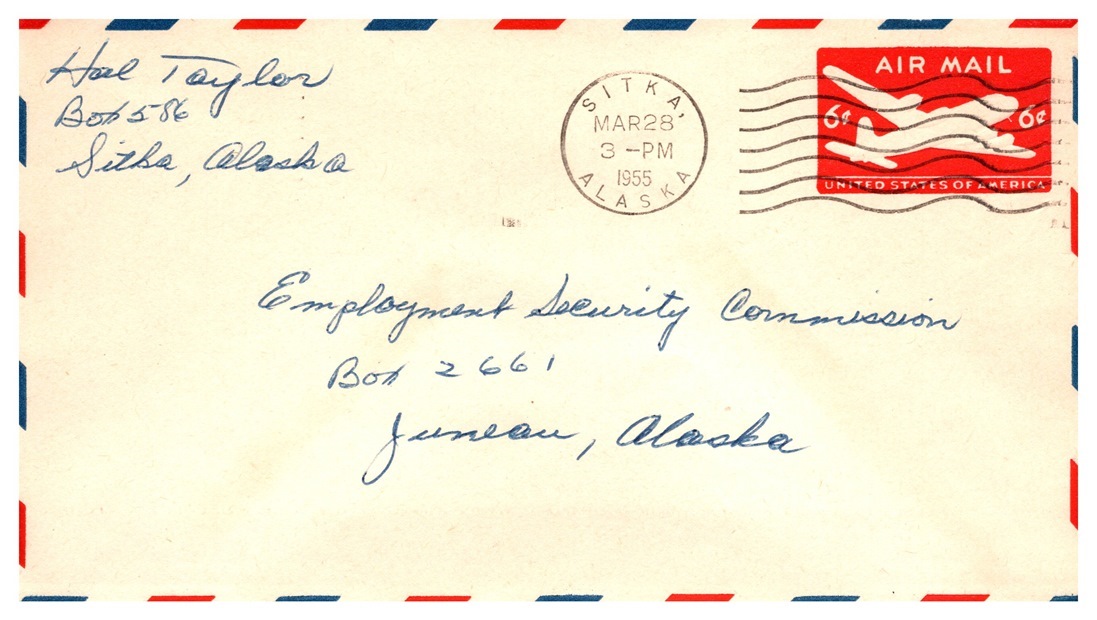 Hal Taylor
Box 586
Sitka, Alaska
SITKA,
MAR 28
3 - PM
1955
ALASKA
AIR MAIL
6¢ 6¢
UNITED STATES OF AMERICA
Employment Security Commission
Box 2661
Juneau, Alaska